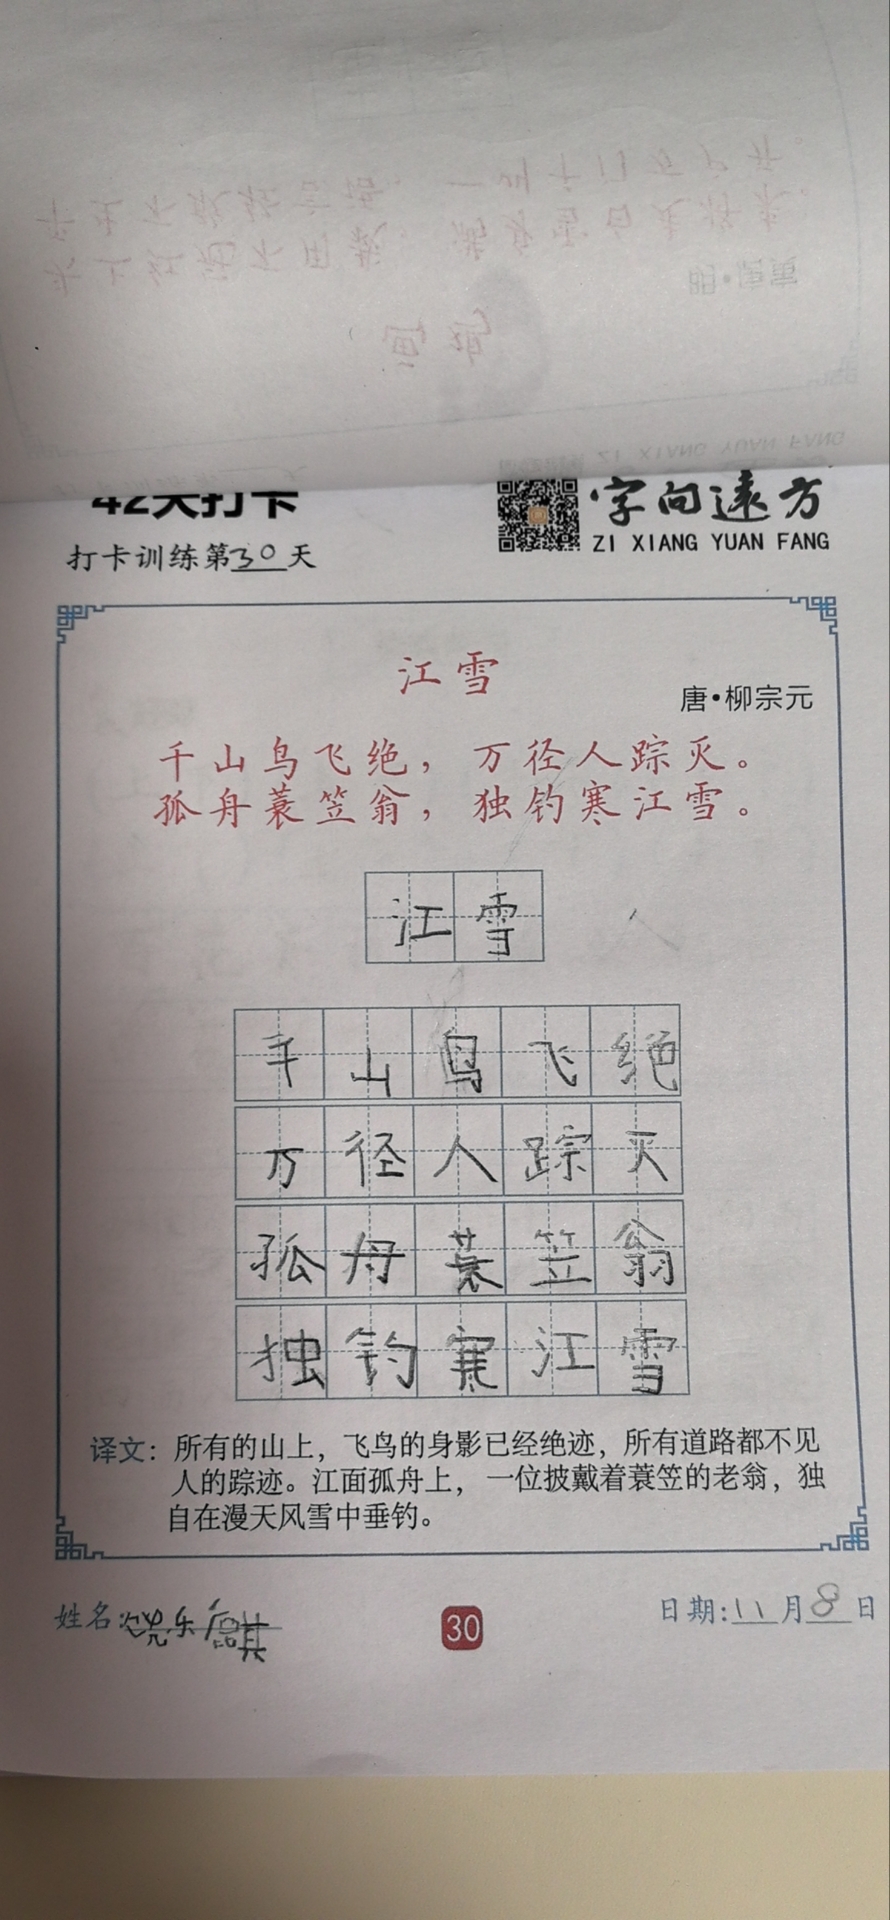 42天打卡
打卡训练第30天
字向远方
ZI XIANG YUAN FANG
江雪
唐·柳宗元
千山鸟飞绝，万径人踪灭。
孤舟蓑笠翁，独钓寒江雪。
江雪
千山鸟飞绝
万径人踪灭
孤舟蓑笠翁
独钓寒江雪
译文：所有的山上，飞鸟的身影已经绝迹，所有道路都不见
人的踪迹。江面孤舟上，一位披戴着蓑笠的老翁，独
自在漫天风雪中垂钓。
姓名:
30
日期:11月8日